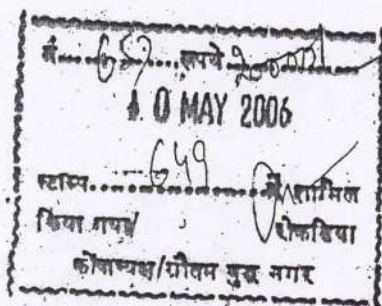 नं. रूपये
10 MAY 2006
स्टाम्प 649 में शामिल
किया गया रोकडिया
कोषाध्यक्ष/गौतम बुद्ध नगर